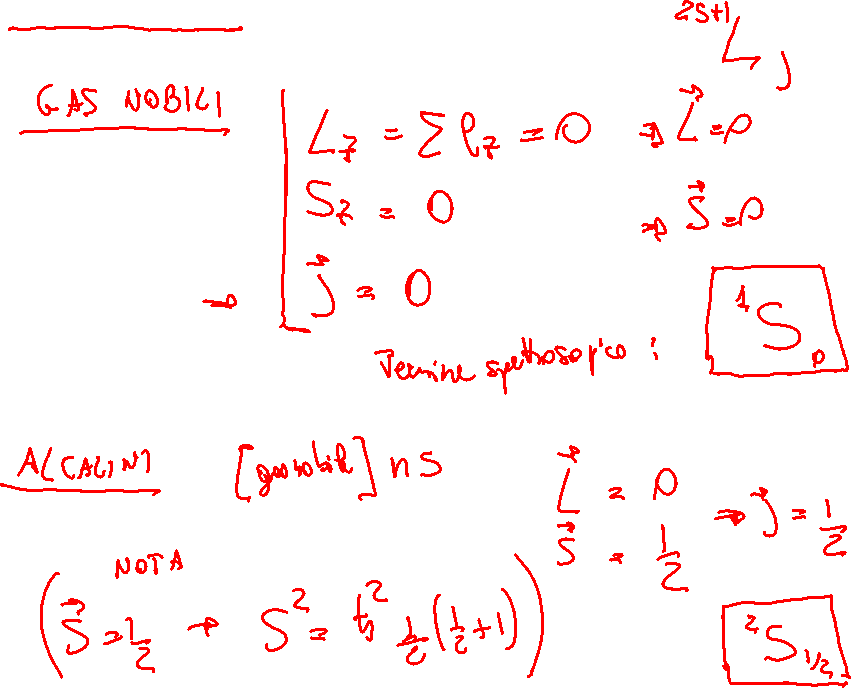 2S+1 L J
GAS NOBILI
L_z = Σ l_z = 0 ⇒ L⃗ = 0
S_z = 0 ⇒ S⃗ = 0
→ J⃗ = 0
Termine spettroscopico : ¹S₀
ALCALINI [gas nobile] ns L⃗ = 0
S⃗ = 1/2 ⇒ J⃗ = 1/2
NOTA
(S⃗ = 1/2 → S² = ħ² 1/2 (1/2 + 1))
²S₁/₂